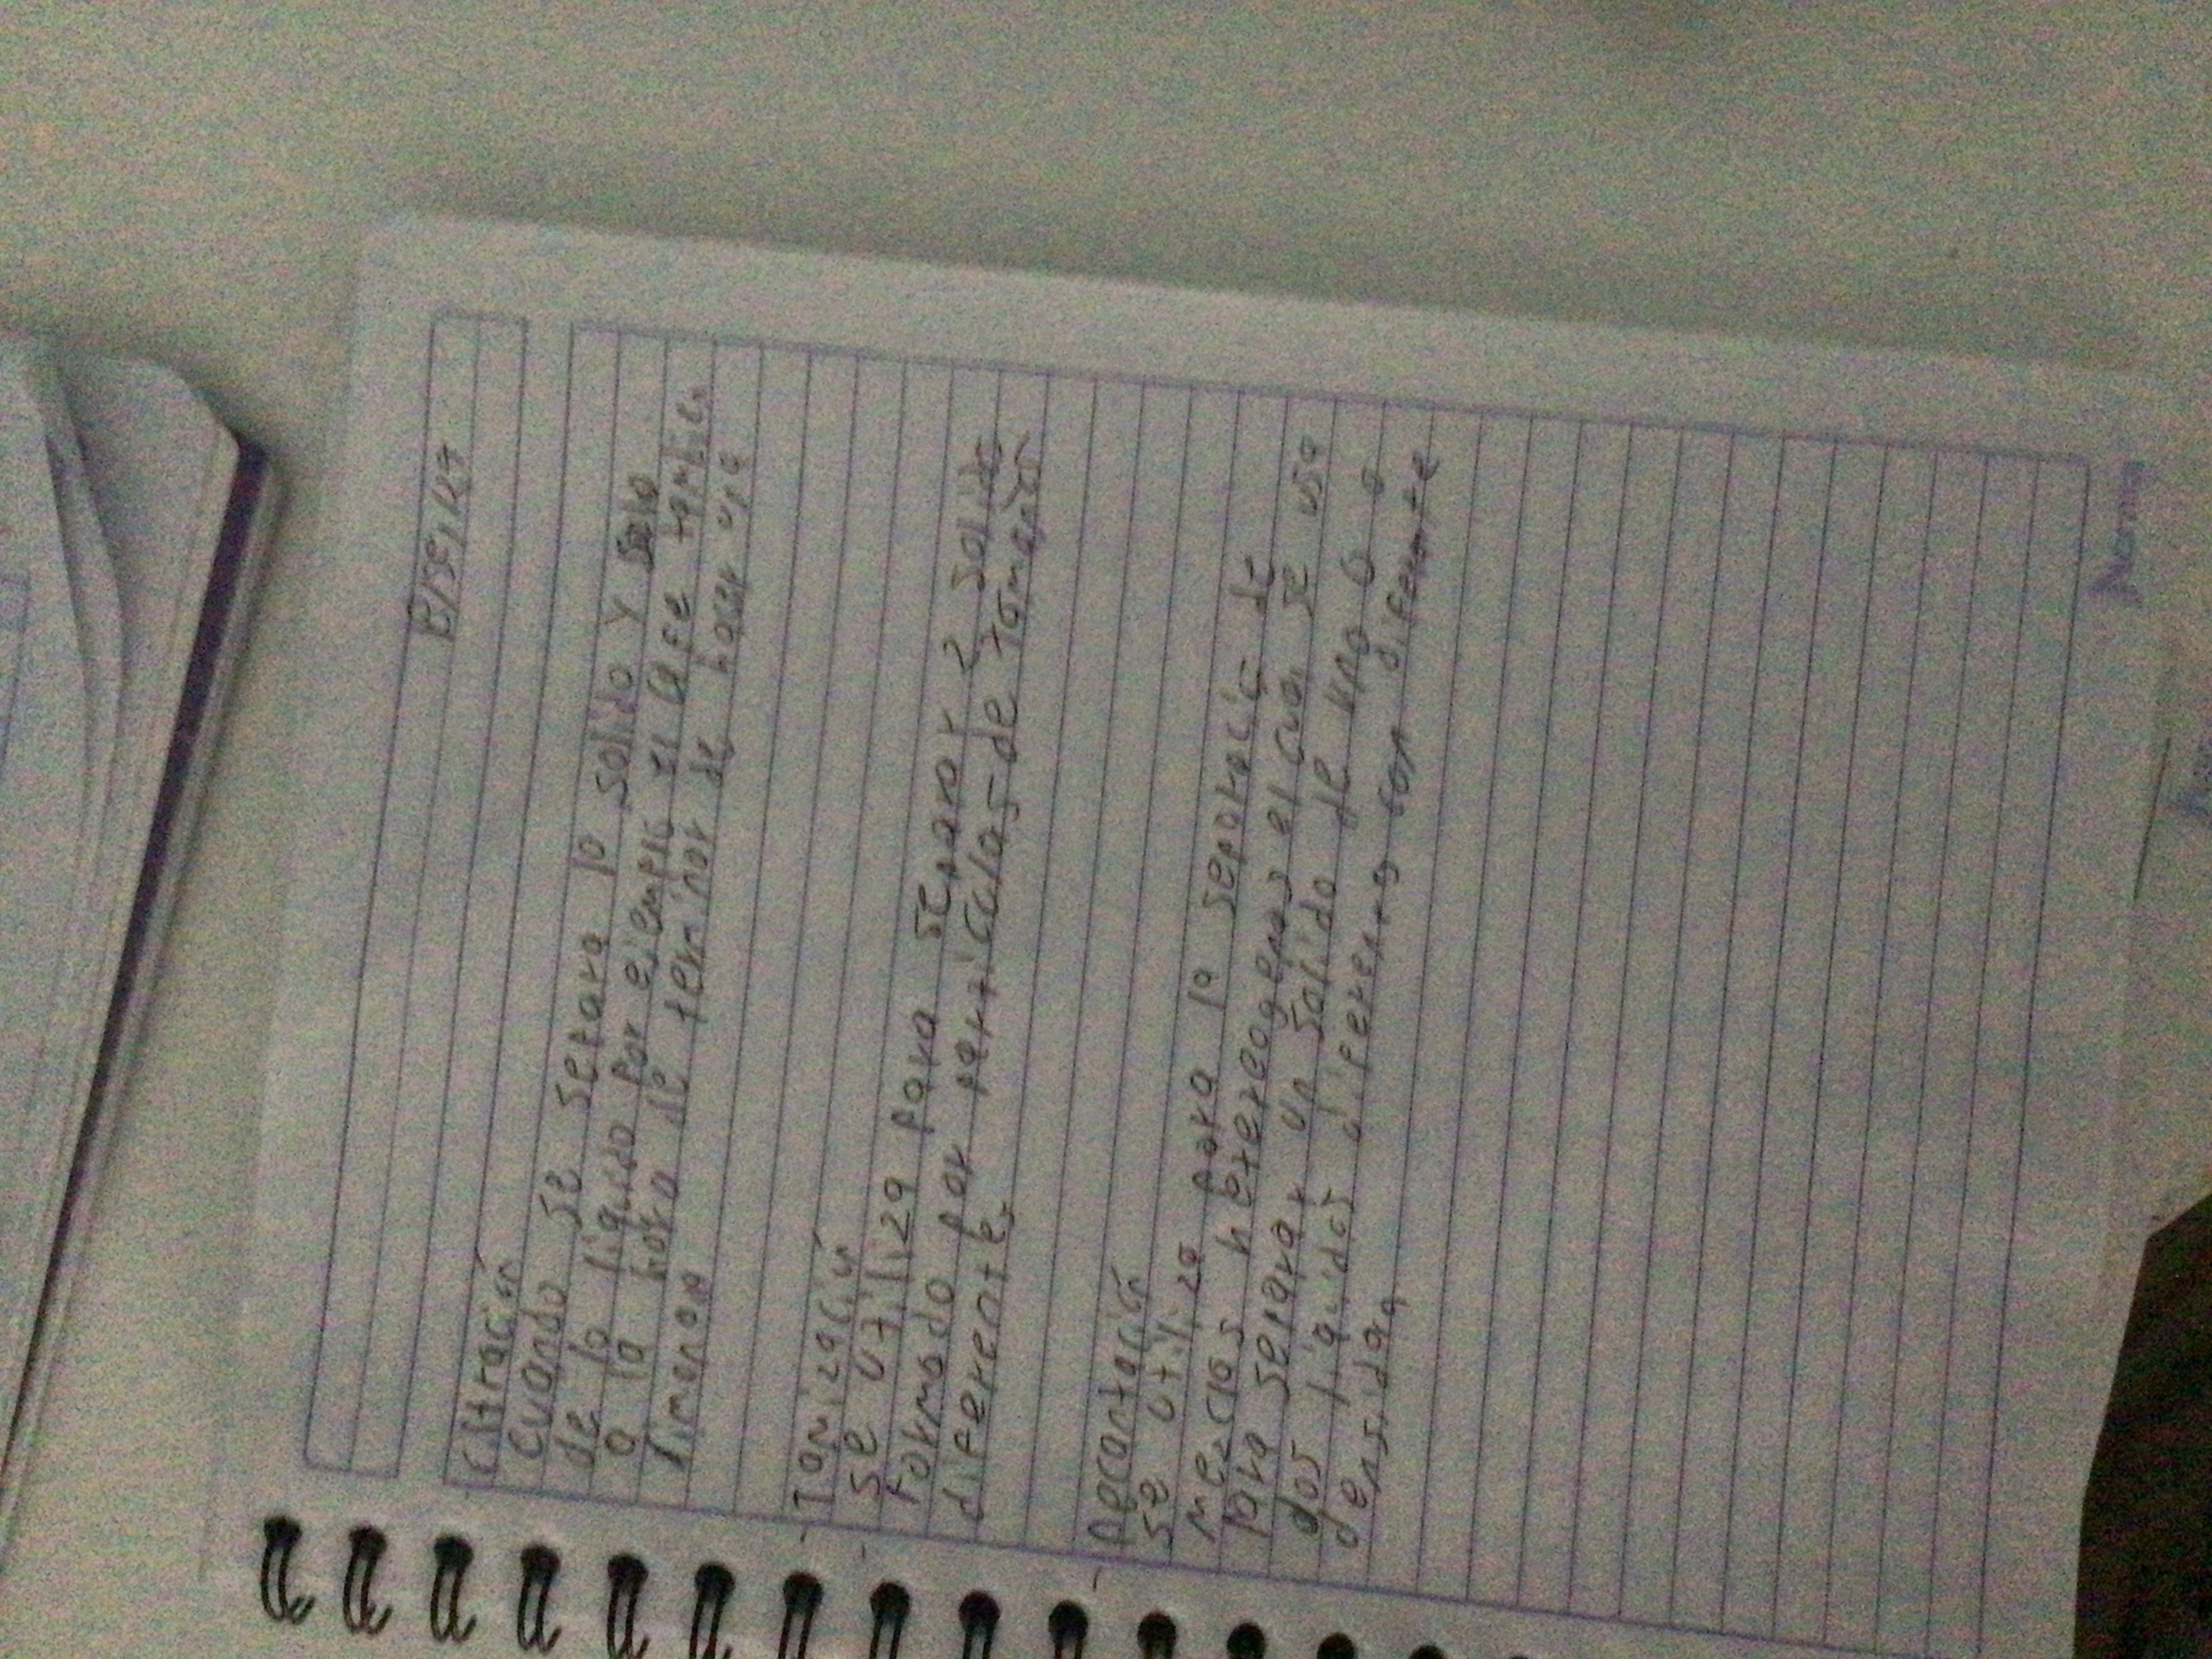 Filtración
cuando se separa lo solido y solo
de lo liquido por ejemplo el cafe tambien
a la hora de terminar de hacer una
limonada
Tamización
se utiliza para separar 2 solidos
Formado por particulas de tamaño
diferente
Decantación
se utiliza para la separació de
mezclas heterogenas el cual se usa
para separar un solido de uno o
dos liquidos diferente
densidad
Norma